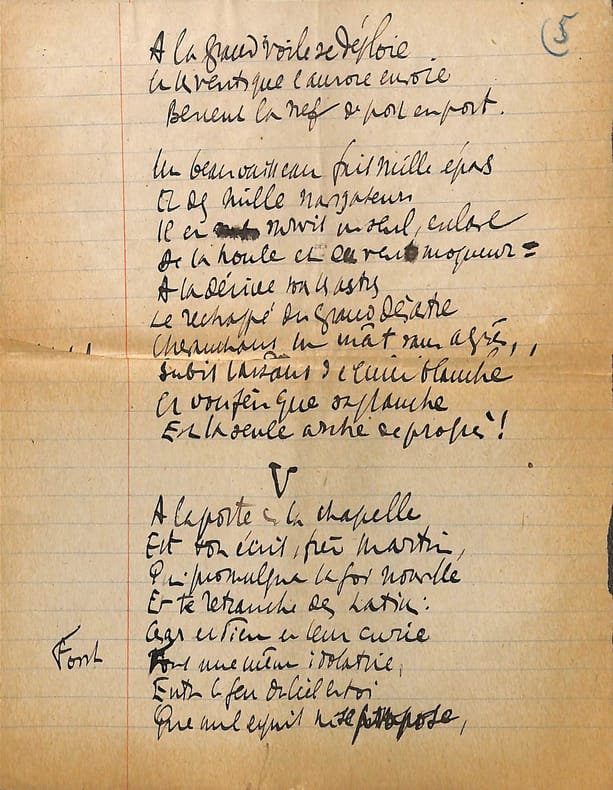 5
A la grand voile se déploie
Et les vents que l'aurore envoie
Bercent la nef de port en port.
Un beau vaisseau fait mille épars
Et des mille navigateurs
Il en survit un seul, enlacé
De la houle et du vent moqueur
A la dérive sous les astres
Le réchappé du grand désastre
Chevauchant un mât sans agrès,
Subit l'assaut de l'écume blanche
Et voudrait que sa planche
Est la seule arche de progrès !
V
A la porte de la chapelle
Est ton écrit, frère Martin,
Qui promulgua la foi nouvelle
Et te retranche des Latins :
César et Dieu et leur curie
Font
Font une même idolâtrie,
Entre le feu du ciel et toi
Que nul esprit ne se propose,